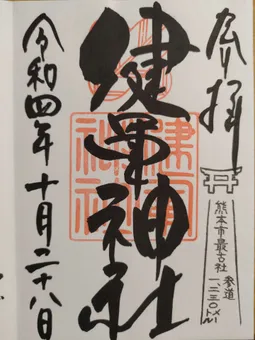 奉拝
熊本市最古社
参道
一、二三〇メートル
健軍神社
令和四年十月二十八日